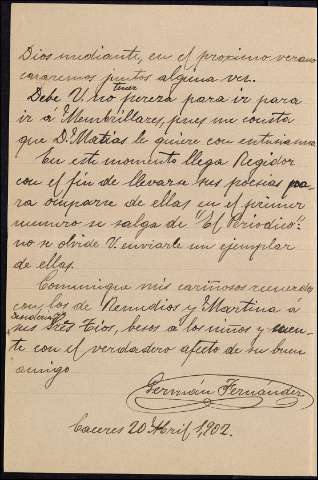 Dios mediante, en el proximo verano
cazaremos juntos alguna vez.
Debe V. no tener pereza para ir para
ir á Membrillares, pues me consta
que D. Matias le quiere con entusiasmo
En este momento llega Regidor
con el fin de llevarse sus poesias pa
ra ocuparse de ellas en el primer
numero se salga de "El Periodico":
no se olvide V. enviarle un ejemplar
de ellas.
Comunique mis cariñosos recuerdos
con los de Remedios y Martina á
sus Sres Tios, besos á los niños y
te con el verdadero afecto de su buen
amigo
Germán Fernández
Caceres 20 Abril 1,902.